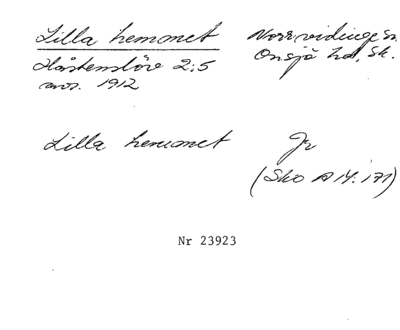 Lilla hemmet Norrvidinge sn
Håstenslöv 2:5 Onsjö hd, Sk.
avs. 1912
Lilla hemmet Jr
(Sko A 14:171)
Nr 23923